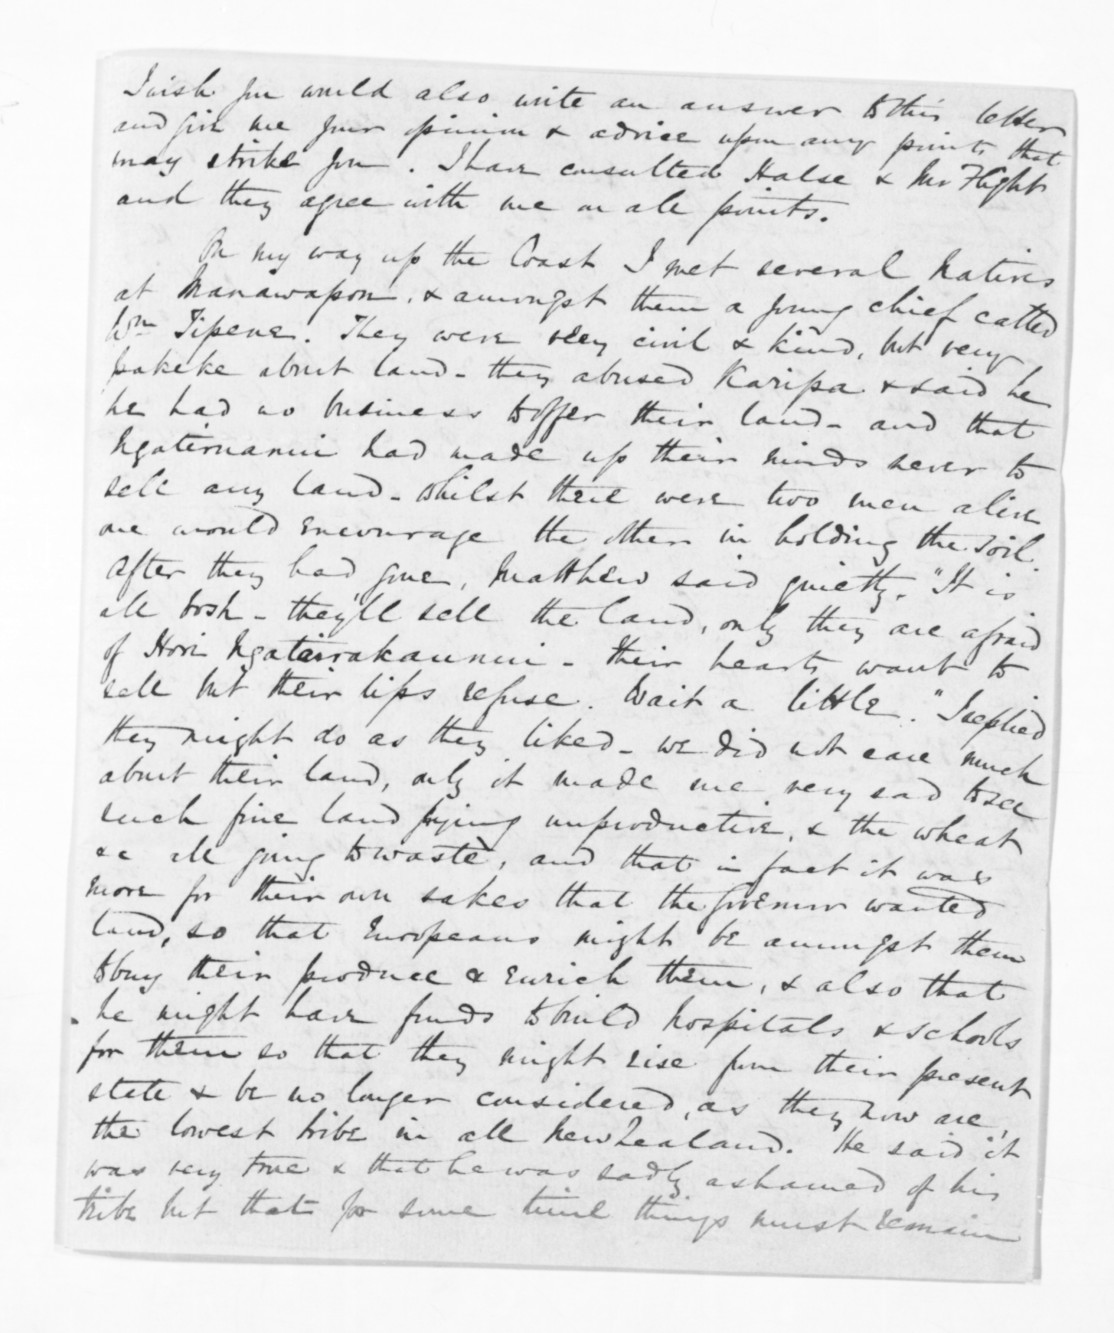 I wish you would also write an answer to this letter
and give me your opinion & advice upon any points that
may strike you. I have consulted Halse & Mr Flight
and they agree with me on all points.
On my way up the Coast I met several Natives
at Manawapou, & amongst them a young chief called
Wm Tipene. They were very civil & kind, but very
pakeke about land - they abused Karipa & said he
he had no business to offer their land - and that
Ngatiruanui had made up their minds never to
sell any land - whilst there were two men alive
one would encourage the other in holding the soil.
After they had gone, Matthew said quietly. "It is
all bosh - they'll sell the land, only they are afraid
of Hori - their hearts want to
sell but their lips refuse. Wait a little." I replied
they might do as they liked - we did not care much
about their land, only it made me very sad to see
such fine land lying unproductive, & the wheat
&c all going to waste, and that in fact it was
more for their own sakes that the Governor wanted
land, so that Europeans might be amongst them
to buy their produce & enrich them, & also that
he might have funds to build hospitals & schools
for them so that they might rise from their present
state & be no longer considered, as they now are,
the lowest tribe in all New Zealand. He said it
was very true & that he was sadly ashamed of his
tribe but that for some time things must remain